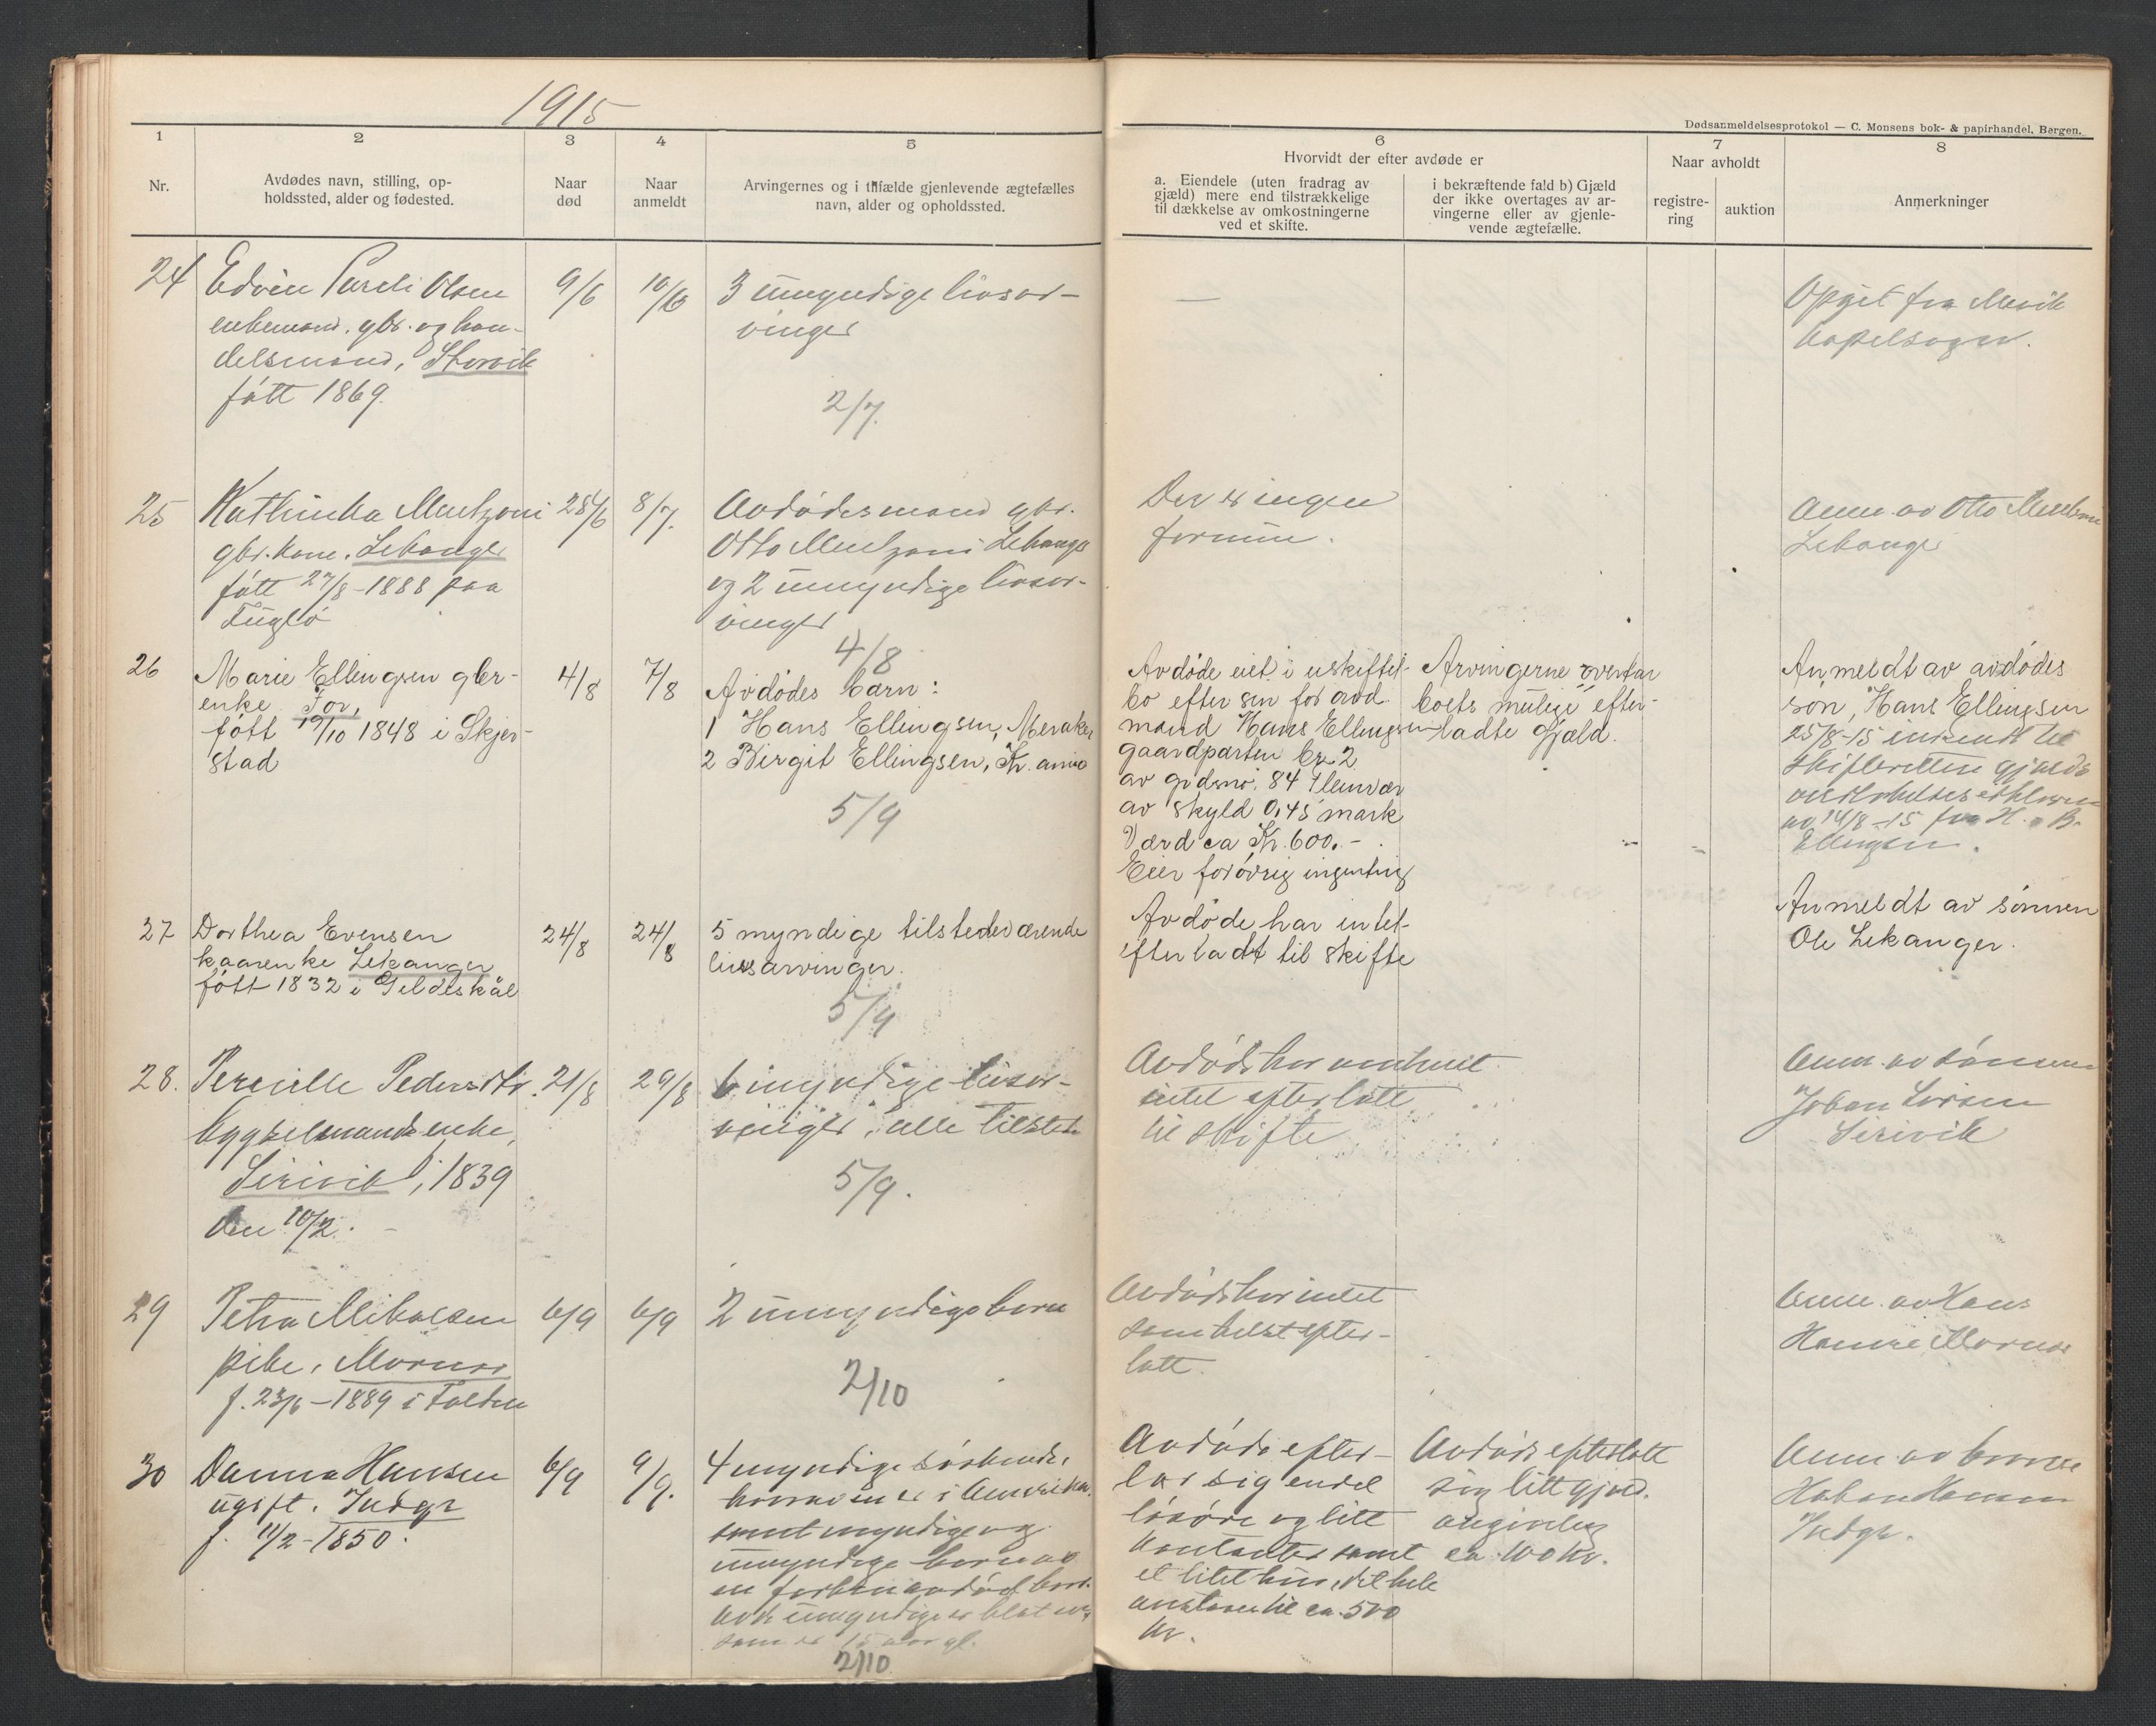 1915
Dødsanmeldelsesprotokol — C. Monsens bok- & papirhandel, Bergen.
1
2
3
4
5
6
7
8
Nr.
Avdødes navn, stilling, op-
holdssted, alder og fødested.
Naar
død
Naar
anmeldt
Arvingernes og i tilfælde gjenlevende ægtefælles
navn, alder og opholdssted.
Hvorvidt der efter avdøde er
a. Eiendele (uten fradrag av
gjæld) mere end tilstrækkelige
til dækkelse av omkostningerne
ved et skifte.
i bekræftende fald b) Gjæld
der ikke overtages av ar-
vingerne eller av gjenle-
vende ægtefælle.
Naar avholdt
registre-
ring
auktion
Anmerkninger
24
Edvin Olsen
enkemand. gbr. og han-
delsmand, Storvik
født 1869.
9/6
10/6
3 umyndige livsar-
vinger
2/7.
—
Opgit fra
kapelsogn.
25
Kathinka Mentzoni
gbr. kone. Lekanger
født 27/8-1888 paa
Fuglø
28/6
8/7.
Avdødes mand gbr.
Otto Mentzoni Lekanger
og 2 umyndige livsar-
vinger
4/8
Der er ingen
formue.
Anm. av Otto Mentzoni
Lekanger
26
Marie Ellingsen gbr-
enke Før,
født 19/10 1848 i Skjer-
stad
4/8
7/8
Avdødes barn:
1 Hans Ellingsen, Meraker
2 Birgit Ellingsen, Kr.ania
5/9
Avdøde eiet i uskiftet
bo efter sin før avd.
mand Hans Ellingsen
gaardparten br. 2
av gdsnr. 84 Flemvær
av skyld 0,45 mark
Værd ca Kr. 600.-
Eier forøvrig ingenting
Arvingerne overtar
boets mulige efter-
ladte Gjæld.
Anmeldt av avdødes
søn, Hans Ellingsen
25/8-15 innsendt til
skifteretten gjælds
av 14/8-15 fra H. o B.
Ellingsen.
27
Dorthea Evensen
kaarenke Lekanger
født 1832 i Gildeskål
24/8
24/8
5 myndige tilstedeværende
livsarvinger.
5/9
Avdøde har intet
efterladt til skifte
Anmeldt av sønnen
Ole Lekanger.
28.
Pernille Pedersdtr.
enke,
1839
den 10/2.
21/8
29/8
6 myndige livsar-
vinger, alle tilstede
5/9.
Avdøde har
intet efterlatt
til skifte
Anm. av sønnen
Johan
29
Petra Mikalsen
pike,
f. 23/6-1889 i Folden
6/9
6/9
2 umyndige børn
2/10
Avdøde har intet
somhelst efter-
latt.
Anm. av Hans
30
Danna Hansen
ugift. Indgr
f. 11/2-1850.
6/9
9/9.
4 myndige søskende,
hvorav en er i Amerika.
samt myndige og
umyndige børn av
en forhen avdød bror.
Avdøde umyndige er blot en,
som er 15 aar gl.
2/10
Avdøde efter-
lar sig endel
løsøre og litt
kontanter samt
et litet hus, det hele
anslaaes til ca. 500
kr.
Avdøde efterlatt
sig litt gjæld.
angivelig
ca. 100 kr.
Anm. av broren
Hakon Hansen
Indgr.